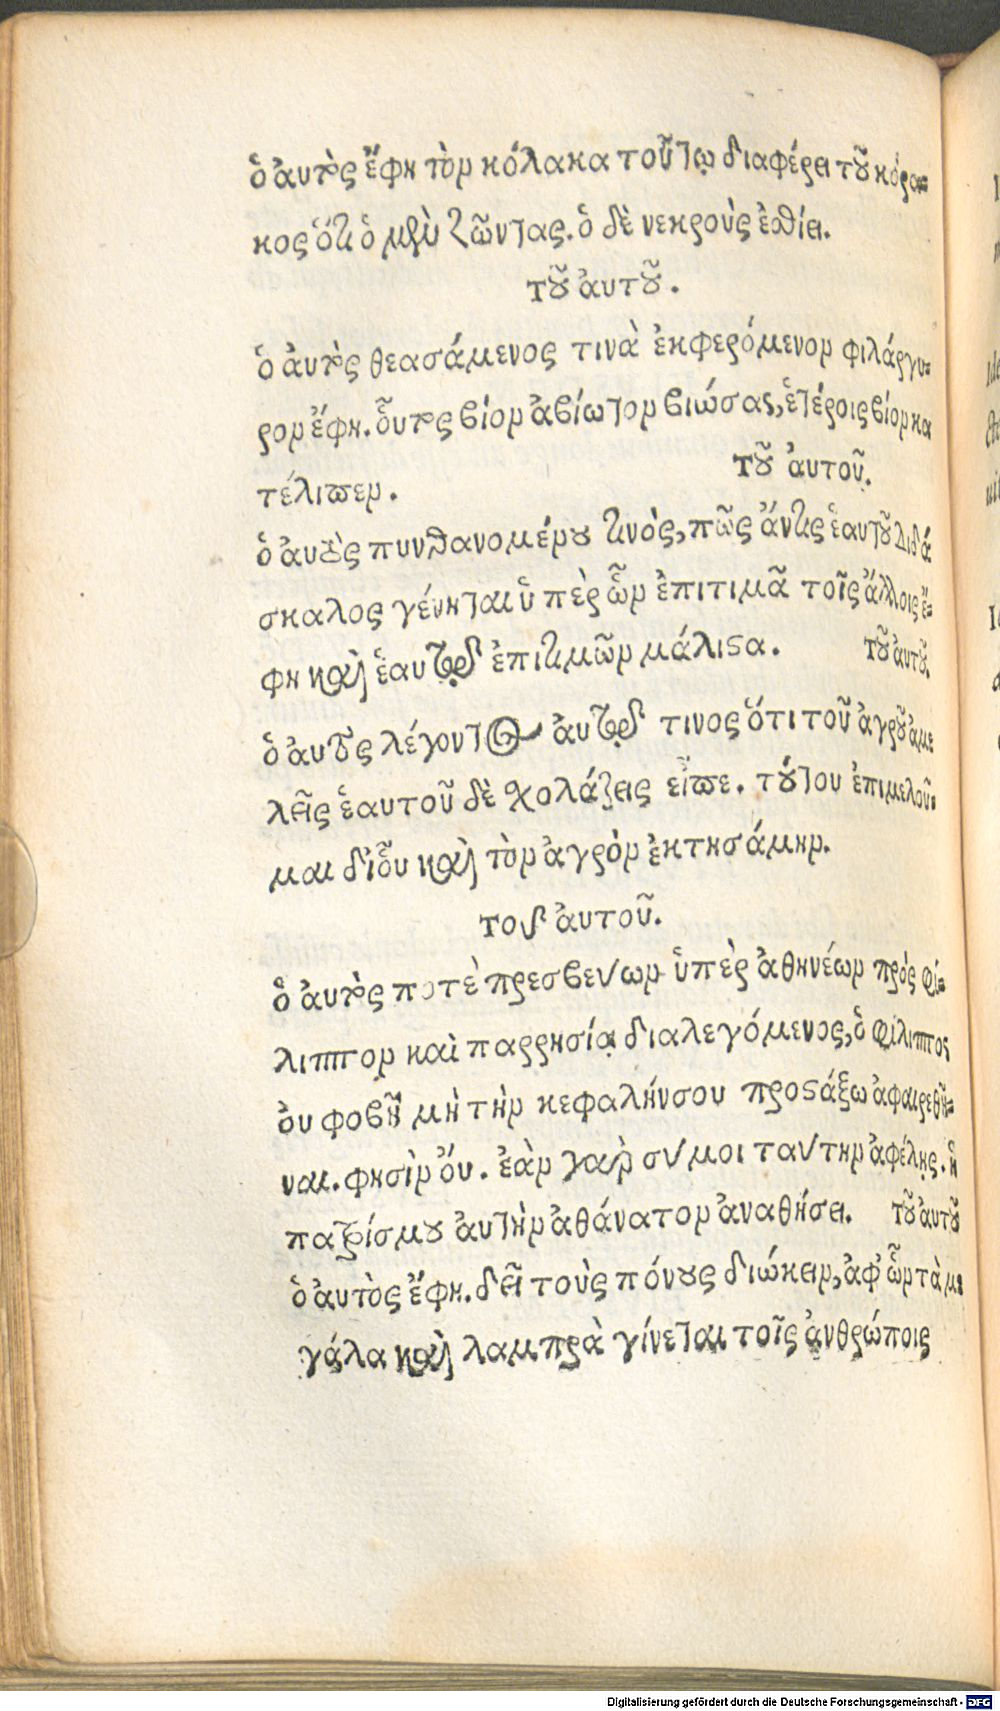 ὁ ἀυτὸς ἔφη τὸν κόλακα τούτῳ διαφέρει τοῦ κόρα=
κος ὅτι ὁ μὲν ζῶντας. ὁ δὲ νεκροὺς ἐσθίει.
τοῦ ἀυτοῦ.
ὁ ἀυτὸς θεασάμενος τινὰ ἐκφερόμενον φιλάργυ=
ρον ἔφη. οὗτος βίον ἀβίωτον βιώσας, ἑτέροις βίον κα
τέλιπεν. τοῦ ἀυτοῦ.
ὁ ἀυτὸς πυνθανομένου τινὸς, πῶς ἄν τις ἑαυτοῦ διδά
σκαλος γένηται ὑπὲρ ὧν ἐπιτιμᾶ τοῖς ἄλλοις ἔ=
φη καὶ ἑαυτῷ ἐπιτιμῶν μάλιστα. τοῦ ἀυτοῦ.
ὁ ἀυτὸς λέγοντος ἀυτῷ τινος ὅτι τοῦ ἀγροῦ ἀμε
λεῖς ἑαυτοῦ δὲ χολάζεις εἶπε. τούτου ἐπιμελοῦ=
μαι δἰοὗ καὶ τὸν ἀγρὸν ἐκτησάμην.
τοῦ ἀυτοῦ.
ὁ ἀυτὸς ποτὲ πρεσβεύων ὑπὲρ ἀθηνέων πρὸς φί=
λιππον καὶ παρρησίᾳ διαλεγόμενος, ὁ φίλιππος
ὀυ φοβῆ μὴ τὴν κεφαλήνσου προστάξω ἀφαιρεθῆ=
ναι. φησὶν ὄυ. ἐὰν γὰρ σύ μοι ταύτην ἀφέλῃς. ἡ
πατρίσμου ἀυτὴν ἀθάνατον ἀναθήσει. τοῦ ἀυτοῦ
ὁ ἀυτὸς ἔφη. δεῖ τοὺς πόνους διώκειν, ἀφ' ὧν τὰ με
γάλα καὶ λαμπρὰ γίνεται τοῖς ἀνθρώποις
Digitalisierung gefördert durch die Deutsche Forschungsgemeinschaft - DFG